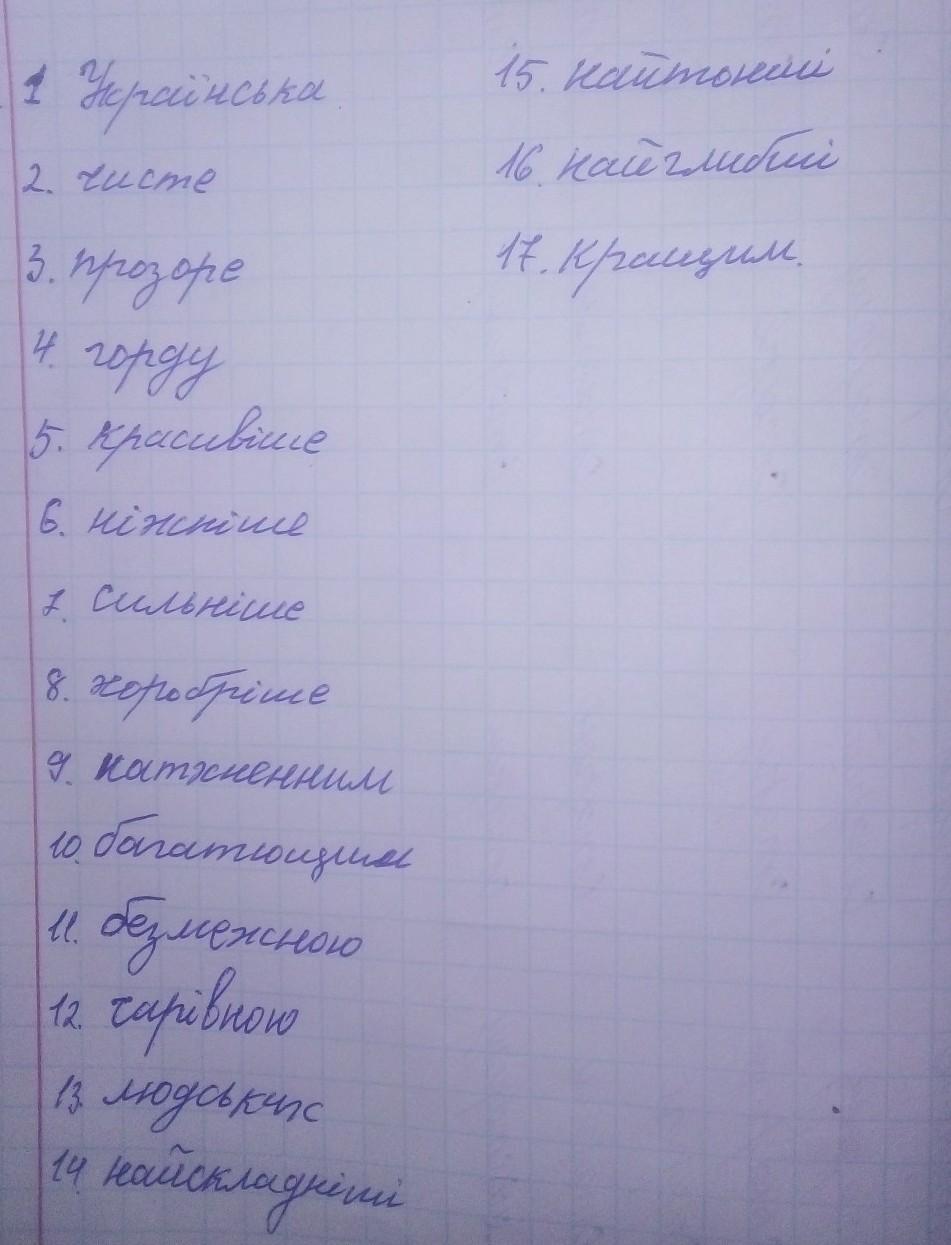 1 Українська
2. чисте
3. прозоре
4. горду
5. красивіше
6. ніжніше
7. сильніше
8. хоробріше
9. натхненним
10. багатющим
11. безмежною
12. чарівною
13. людських
14. найскладніші
15. найтонші
16. найглибші
17. кращим.